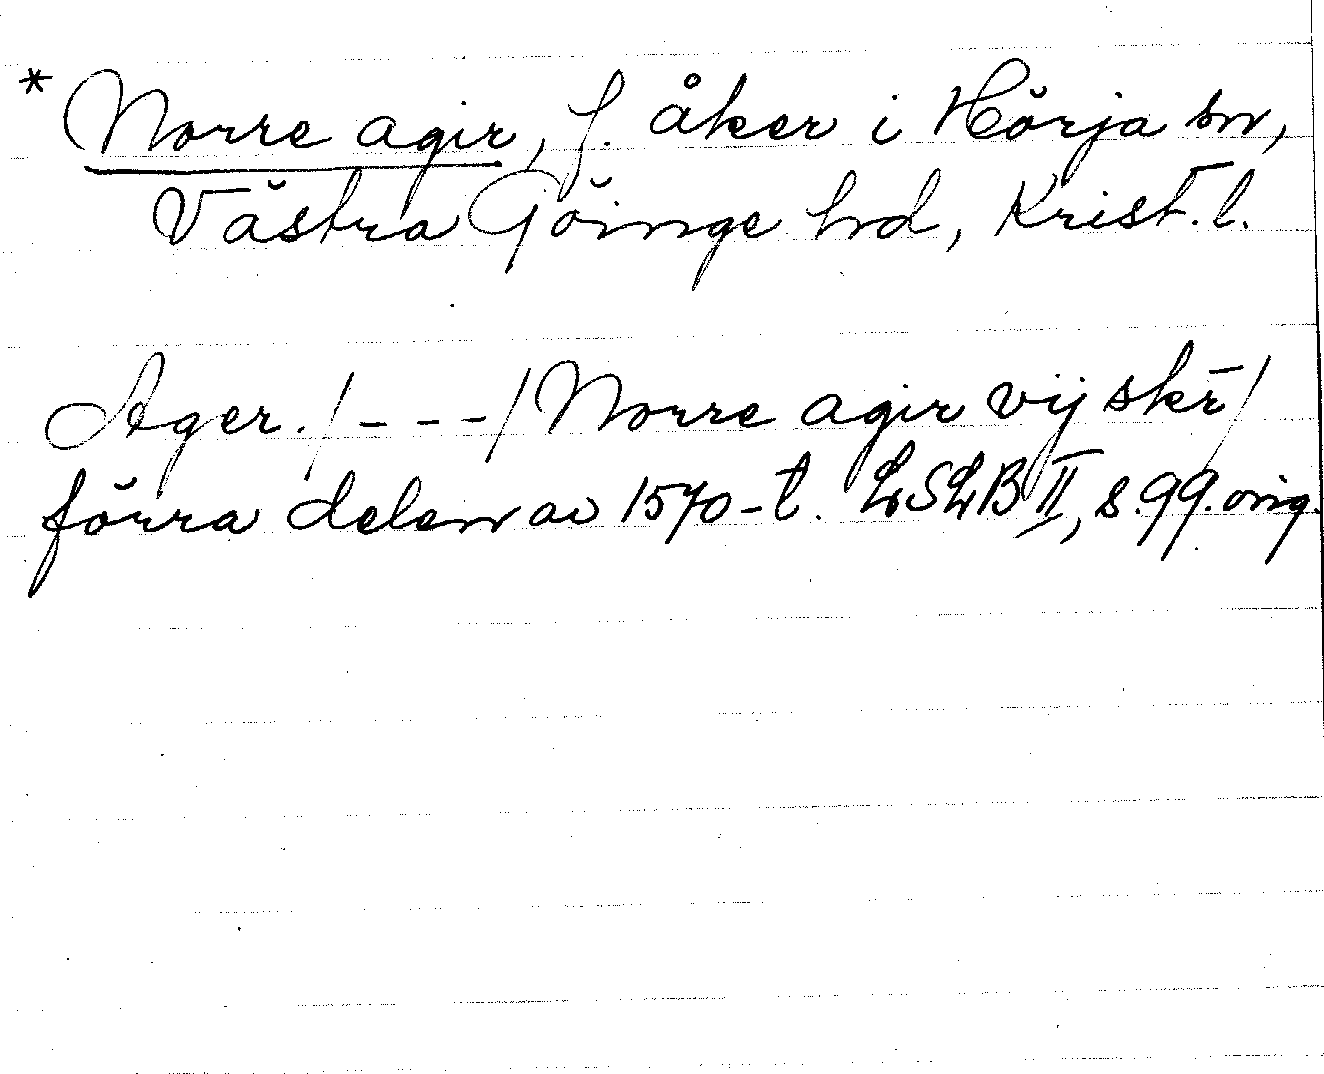 * Norre agir, f. åker i Hörja sn,
Västra Göinge hd, Krist. l.
Ager. /- - -/ Norre agir vij skr̄ /
förra delen av 1570-t. LSLB II, s. 99. orig.